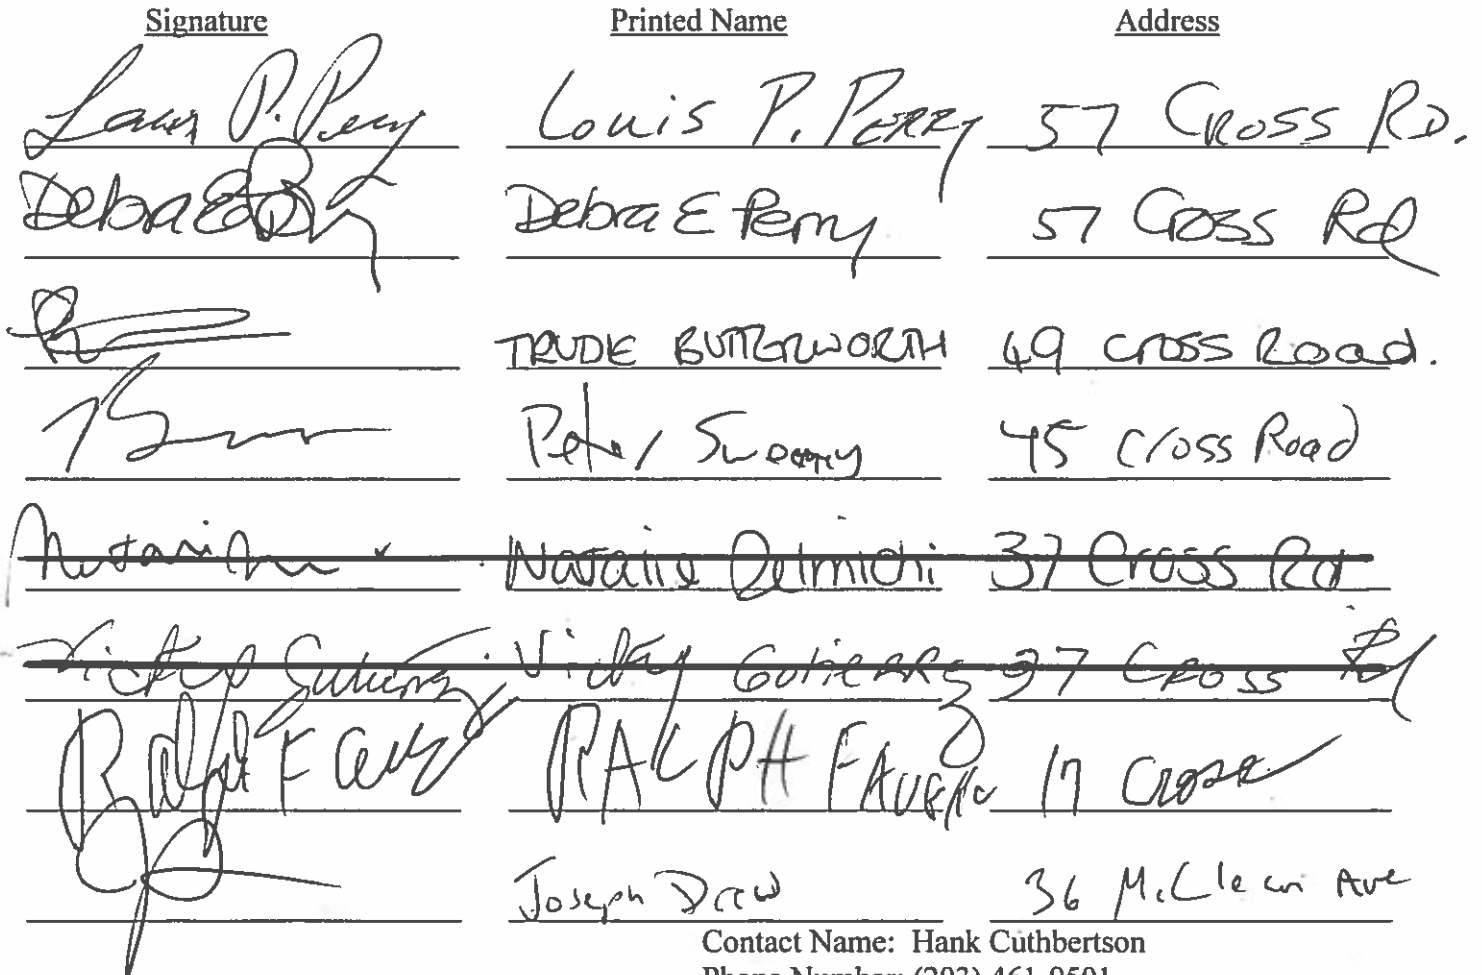 Signature Printed Name Address
Louis P. Perry Louis P. PERRY 57 CROSS RD.
Debra E Perry Debra E Perry 57 Cross Rd
TRUDIE BUTTERWORTH 49 cross Road.
Peter Sweeney 45 Cross Road
Natalie 37 Cross Rd
Vicky Gutierrez Vicky GUTIERREZ 37 CROSS Rd
Ralph F RALPH 17 Cross
Joseph Drew 36 McClean Ave
Contact Name: Hank Cuthbertson
Phone Number: (203) 461-9501